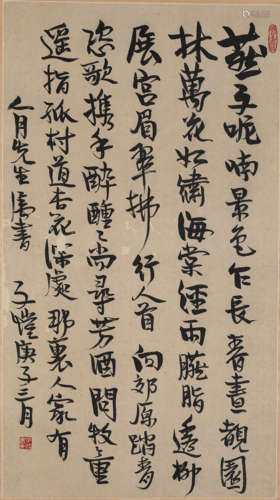 燕子呢喃景色乍長春晝覩園
林萬花如繡海棠經雨臙脂透柳
展宮眉翠拂行人首向郊原踏青
恣歌携手醉醺〻尚尋芳酒問牧童
遥指孤村道杏花深處那裏人家有
月先生属書 子愷庚子三月